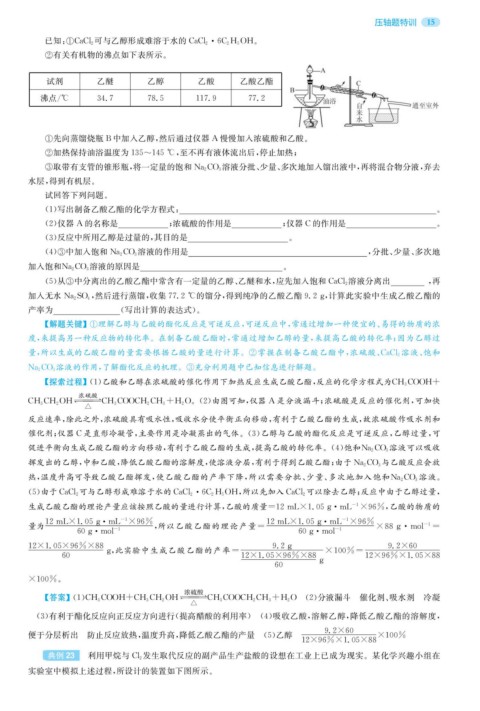 压轴题特训 15
已知:①CaCl₂可与乙醇形成难溶于水的 CaCl₂·6C₂H₅OH。
②有关有机物的沸点如下表所示。
试剂 乙醚 乙醇 乙酸 乙酸乙酯
沸点/℃ 34.7 78.5 117.9 77.2
A
B
C
油浴
自来水
通至室外
①先向蒸馏烧瓶 B 中加入乙醇,然后通过仪器 A 慢慢加入浓硫酸和乙酸。
②加热保持油浴温度为 135~145 ℃,至不再有液体流出后,停止加热;
③取带有支管的锥形瓶,将一定量的饱和 Na₂CO₃溶液分批、少量、多次地加入馏出液中,再将混合物分液,弃去
水层,得到有机层。
试回答下列问题。
(1)写出制备乙酸乙酯的化学方程式: 。
(2)仪器 A 的名称是 ;浓硫酸的作用是 ;仪器 C 的作用是 。
(3)反应中所用乙醇是过量的,其目的是 。
(4)③中加入饱和 Na₂CO₃溶液的作用是 ,分批、少量、多次地
加入饱和Na₂CO₃溶液的原因是 。
(5)从③中分离出的乙酸乙酯中常含有一定量的乙醇、乙醚和水,应先加入饱和 CaCl₂溶液分离出 ,再
加入无水 Na₂SO₄,然后进行蒸馏,收集 77.2 ℃的馏分,得到纯净的乙酸乙酯 9.2 g,计算此实验中生成乙酸乙酯的
产率为 (写出计算的表达式)。
【解题关键】①理解乙醇与乙酸的酯化反应是可逆反应,可逆反应中,常通过增加一种便宜的、易得的物质的浓
度,来提高另一种反应物的转化率。在制备乙酸乙酯时,常通过增加乙醇的量,来提高乙酸的转化率;因为乙醇过
量,所以生成的乙酸乙酯的量需要根据乙酸的量进行计算。②掌握在制备乙酸乙酯中,浓硫酸、CaCl₂溶液、饱和
Na₂CO₃溶液的作用,了解酯化反应的机理。③充分利用题中已知信息进行解题。
【探索过程】(1)乙酸和乙醇在浓硫酸的催化作用下加热反应生成乙酸乙酯,反应的化学方程式为CH₃COOH+
CH₃CH₂OH ⇌(浓硫酸/△) CH₃COOCH₂CH₃+H₂O。(2)由图可知,仪器 A 是分液漏斗;浓硫酸是反应的催化剂,可加快
反应速率,除此之外,浓硫酸具有吸水性,吸收水分使平衡正向移动,有利于乙酸乙酯的生成,故浓硫酸作吸水剂和
催化剂;仪器 C 是直形冷凝管,主要作用是冷凝蒸出的气体。(3)乙醇与乙酸的酯化反应是可逆反应,乙醇过量,可
促进平衡向生成乙酸乙酯的方向移动,有利于乙酸乙酯的生成,提高乙酸的转化率。(4)饱和Na₂CO₃溶液可以吸收
挥发出的乙醇,中和乙酸,降低乙酸乙酯的溶解度,使溶液分层,有利于得到乙酸乙酯;由于 Na₂CO₃与乙酸反应会放
热,温度升高可导致乙酸乙酯挥发,使乙酸乙酯的产率下降,所以需要分批、少量、多次地加入饱和Na₂CO₃溶液。
(5)由于 CaCl₂可与乙醇形成难溶于水的 CaCl₂·6C₂H₅OH,所以先加入 CaCl₂可以除去乙醇;反应中由于乙醇过量,
生成乙酸乙酯的理论产量应该按照乙酸的量进行计算,乙酸的质量=12 mL×1.05 g·mL⁻¹×96%,乙酸的物质的
量为 12 mL×1.05 g·mL⁻¹×96%/60 g·mol⁻¹,所以乙酸乙酯的理论产量=12 mL×1.05 g·mL⁻¹×96%/60 g·mol⁻¹×88 g·mol⁻¹=
12×1.05×96%×88/60 g,此实验中生成乙酸乙酯的产率=9.2 g/(12×1.05×96%×88/60 g)×100%=9.2×60/12×96%×1.05×88
×100%。
【答案】(1)CH₃COOH+CH₃CH₂OH ⇌(浓硫酸/△) CH₃COOCH₂CH₃+H₂O (2)分液漏斗 催化剂、吸水剂 冷凝
(3)有利于酯化反应向正反应方向进行(提高醋酸的利用率) (4)吸收乙酸,溶解乙醇,降低乙酸乙酯的溶解度,
便于分层析出 防止反应放热,温度升高,降低乙酸乙酯的产量 (5)乙醇 9.2×60/12×96%×1.05×88×100%
典例 23 利用甲烷与 Cl₂发生取代反应的副产品生产盐酸的设想在工业上已成为现实。某化学兴趣小组在
实验室中模拟上述过程,所设计的装置如下图所示。